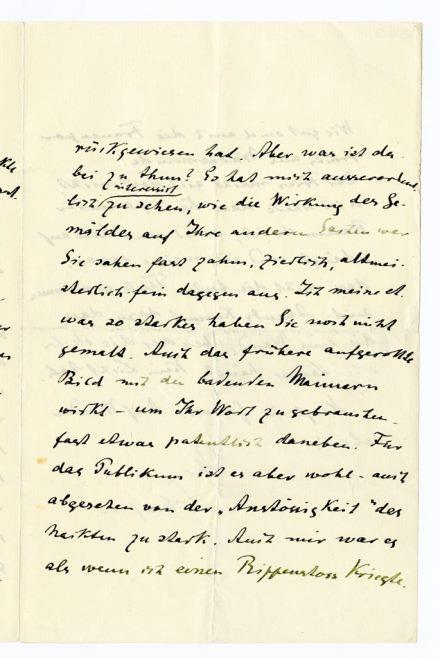 rückgewiesen hat. Aber was ist da-
bei zu thun? Es hat mich ausserordent-
interessirt
lich zu sehen, wie die Wirkung des Ge-
mäldes auf Ihre andern Sachen war
Sie sahen fast zahm, zierlich, altmei-
sterlich-fein dagegen aus. Ich meine et-
was so starkes haben Sie noch nicht
gemalt. Auch das frühere aufgerollte
Bild mit den badenden Männern
wirkt - um Ihr Wort zu gebrauchen -
fast etwas daneben. Für
das Publikum ist es aber wohl - auch
abgesehen von der „Anstössigkeit" des
Nackten zu stark. Auch mir war es
als wenn ich einen Rippenstoss kriegte.